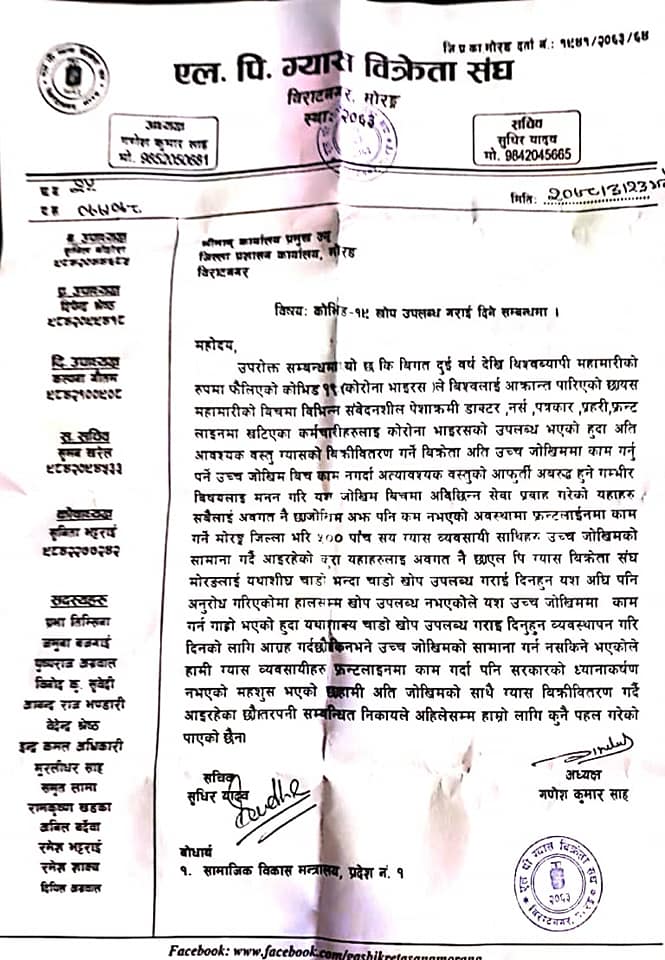 जि प्र का मोरङ दर्ता नं.: १५४१/२०६३/६४
एल. पि. ग्यास विक्रेता संघ
विराटनगर, मोरङ
स्था: २०६३
अध्यक्ष
गणेश कुमार साह
मो. 9852050681
सचिव
सुधिर यादव
मो. 9842045665
मिति:
श्रीमान् कार्यालय प्रमुख ज्यू
जिल्ला प्रशासन कार्यालय, मोरङ
विराटनगर
विषय: कोभिड-१९ खोप उपलब्ध गराई दिने सम्बन्धमा ।
महोदय,
उपरोक्त सम्बन्धमा यो छ कि बिगत दुई वर्ष देखि बिश्वब्यापी महामारीको
रुपमा फैलिएको कोभिड १९ (कोरोना भाइरस )ले बिश्वलाई आक्रान्त पारिएको छायस
महामारीको बिचमा बिभिन्न संबेदनशील पेशाक्रमी डाक्टर ,नर्स ,पत्रकार ,प्रहरी,फ्रन्ट
लाइनमा खटिएका कर्मचारीहरुलाइ कोरोना भाइरसको उपलब्ध भएको हुदा अति
आवश्यक वस्तु ग्यासको बिक्रीवितरण गर्ने बिक्रेता अति उच्च जोखिममा काम गर्नु
पर्ने उच्च जोखिम बिच काम नगर्दा अत्यावश्यक वस्तुको आफुर्ती अबरुद्ध हुने गम्भीर
बिषयलाइ मनन गरि यश जोखिम बिचमा अबिछिन्न सेवा प्रवाह गरेको यहाहरु
सबैलाई अवगत नै छाजोखिम अझ पनि कम नभएको अवस्थामा फ्रन्टलाईनमा काम
गर्ने मोरङ्ग जिल्ला भरि ५०० पाँच सय ग्यास व्यवसायी साथिहरु उच्च जोखिमको
सामाना गर्दै आइरहेको कुरा यहाहरुलाइ अवगत नै छाएल पि ग्यास बिक्रेता संघ
मोरङलाई यथाशीघ्र चाडो भन्दा चाडो खोप उपलब्ध गराई दिनहुन यश अघि पनि
अनुरोध गरिएकोमा हालसम्म खोप उपलब्ध नभएकोले यश उच्च जोखिममा काम
गर्न गाह्रो भएको हुदा यथाशक्य चाडो खोप उपलब्ध गराइ दिनुहुन व्यवस्थापन गरि
दिनको लागि आग्रह गर्दछौकिनभने उच्च जोखिमको सामाना गर्न नसकिने भएकोले
हामी ग्यास व्यवसायीहरु फ्रन्टलाइनमा काम गर्दा पनि सरकारको ध्यानाकर्षण
नभएको महशुस भएको छहामी अति जोखिमको साथै ग्यास बिक्रीवितरण गर्दै
आइरहेका छौतरपनी सम्बन्धित निकायले अहिलेसम्म हाम्रो लागि कुनै पहल गरेको
पाएको छैना
सचिव
सुधिर यादव
अध्यक्ष
गणेश कुमार साह
बोधार्थ
१. सामाजिक विकास मन्त्रालय, प्रदेश नं. १
स. सचिव
सुमन खरेल
कोषाध्यक्ष
सुबिता भट्टराई
सदस्यहरु
प्रभा तिम्सिना
जमुना बजगाई
पुष्पराज अग्रवाल
विनोद कु. सुवेदी
आनन्द राज भण्डारी
वेदेन्द्र श्रेष्ठ
इन्द्र कमल अधिकारी
मुरलीधर साह
समुन लामा
रामकृष्ण खड्का
रमेश भट्टराई
रमेश शाक्य
एल पी ग्यास बिक्रेता संघ
२०६३
बिराटनगर, मोरङ
Facebook: www.facebook.com/